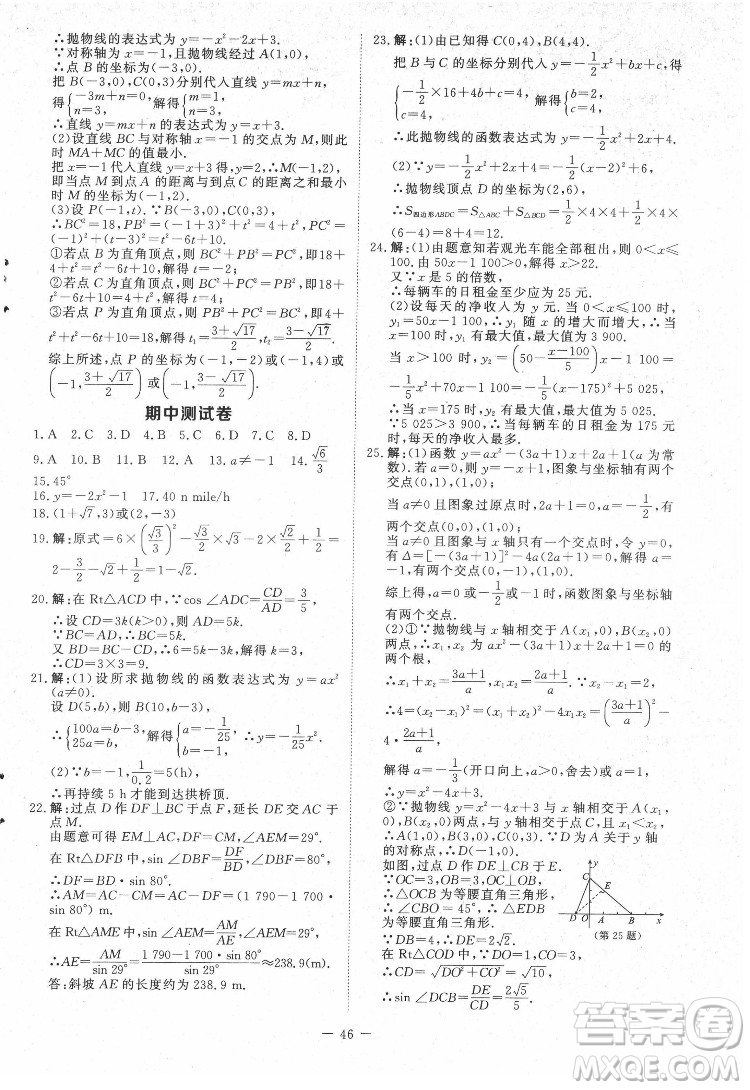 ∴抛物线的表达式为 y=-x²-2x+3.
∵对称轴为 x=-1,且抛物线经过 A(1,0),
∴点 B 的坐标为(-3,0).
把 B(-3,0),C(0,3)分别代入直线 y=mx+n,
得{-3m+n=0, n=3, 解得{m=1, n=3.
∴直线 y=mx+n 的表达式为 y=x+3.
(2)设直线 BC 与对称轴 x=-1 的交点为 M,则此
时 MA+MC 的值最小.
把 x=-1 代入直线 y=x+3,得 y=2.∴M(-1,2).
即当点 M 到点 A 的距离与到点 C 的距离之和最
小时,点 M 的坐标为(-1,2).
(3)设 P(-1,t).∵B(-3,0),C(0,3),
∴BC²=18,PB²=4+t²,PC²=t²-6t+10.
①若点 B 为直角顶点,则 BC²+PB²=PC²,即18+
4+t²=t²-6t+10,解得 t=-2;
②若点 C 为直角顶点,则 BC²+PC²=PB²,即18+
t²-6t+10=4+t²,解得 t=4;
③若点 P 为直角顶点,则 PB²+PC²=BC²,即 4+
t²+t²-6t+10=18,解得 t₁=(3+√17)/2,t₂=(3-√17)/2.
综上所述,点 P 的坐标为(-1,-2)或(-1,4)或
(-1,(3+√17)/2)或(-1,(3-√17)/2).
期中测试卷
1.A 2.C 3.D 4.A 5.C 6.D 7.C 8.D
9.A 10.B 11.B 12.A 13.a≠-1 14.√6/3
15.45°
16.y=-2x²-1 17.40 n mile/h
18.(1+√7,3)或(2,-3)
19.解:原式=6×(√3/3)²-√3×√3/2-2×1/2+1/2=
2-3/2-1+1/2=0.
20.解:在 Rt△ACD 中,∵cos ∠ADC=CD/AD=3/5,
∴设 CD=3k(k>0),则 AD=5k.
∵BC=AD,∴BC=5k.
又 BD=BC-CD,∴5k-3k=6.∴k=3.
∴CD=3×3=9.
21.解:(1)设所求抛物线的函数表达式为 y=ax²
(a≠0).
设 D(5,b),则 B(10,b-3),
∴{100a=b-3, 25a=b, 解得{a=-1/25, b=-1. ∴y=-1/25x².
(2)∵b=-1,∴1/0.2=5(h),
∴再持续 5 h 才能到达拱桥顶.
22.解:过点 D 作 DF⊥BC 于点 F,延长 DE 交 AC 于
点 M.
由题意可得 EM⊥AC,DF=CM,∠AEM=29°.
在 Rt△DFB 中,sin ∠DBF=DF/BD,∠DBF=80°,
∴DF=BD·sin 80°.
∴AM=AC-CM=AC-DF=(1 790-1 700·
sin 80°)m.
在 Rt△AME 中,sin ∠AEM=AM/AE,∠AEM=29°,
∴AE=AM/sin 29°=(1 790-1 700·sin 80°)/sin 29°≈238.9(m).
答:斜坡 AE 的长度约为 238.9 m.
23.解:(1)由已知得 C(0,4),B(4,4).
把 B 与 C 的坐标分别代入 y=-1/2x²+bx+c,得
{-1/2×16+4b+c=4, c=4, 解得{b=2, c=4.
∴此抛物线的函数表达式为 y=-1/2x²+2x+4.
(2)∵y=-1/2x²+2x+4=-1/2(x-2)²+6,
∴抛物线顶点 D 的坐标为(2,6),
∴S四边形ABDC=S△ABC+S△BCD=1/2×4×4+1/2×4×
(6-4)=8+4=12.
24.解:(1)由题意知若观光车能全部租出,则 0<x≤
100.由 50x-1 100>0,解得 x>22.
又∵x 是 5 的倍数,
∴每辆车的日租金至少应为 25 元.
(2)设每天的净收入为 y 元.当 0<x≤100 时,
y₁=50x-1 100,∴y₁ 随 x 的增大而增大,∴当
x=100时,y₁ 有最大值,最大值为 3 900.
当 x>100 时,y₂=(50-(x-100)/5)x-1 100=
-1/5x²+70x-1 100=-1/5(x-175)²+5 025,
∴当 x=175 时,y₂ 有最大值,最大值为 5 025.
∵5 025>3 900,∴当每辆车的日租金为 175 元
时,每天的净收入最多.
25.解:(1)函数 y=ax²-(3a+1)x+2a+1(a 为常
数).若 a=0,则 y=-x+1,图象与坐标轴有两个
交点(0,1),(1,0);
当 a≠0 且图象过原点时,2a+1=0,a=-1/2,有
两个交点(0,0),(1,0);
当 a≠0 且图象与 x 轴只有一个交点时,令 y=0,
有 Δ=[-(3a+1)]²-4a(2a+1)=0,解得 a=-1,
有两个交点(0,-1),(1,0).
综上得,a=0或-1或-1/2时,函数图象与坐标轴
有两个交点.
(2)①∵抛物线与 x 轴相交于 A(x₁,0),B(x₂,0)
两点,∴x₁,x₂ 为 ax²-(3a+1)x+2a+1=0 的两
个根,
∴x₁+x₂=(3a+1)/a,x₁x₂=(2a+1)/a.∵x₂-x₁=2,
∴4=(x₂-x₁)²=(x₁+x₂)²-4x₁x₂=((3a+1)/a)²-
4·(2a+1)/a,
解得 a=-1/3(开口向上,a>0,舍去)或 a=1.∴y=x²-4x+3.
②∵抛物线 y=x²-4x+3 与 x 轴相交于 A(x₁,
0),B(x₂,0)两点,与 y 轴相交于点 C,且 x₂>x₁,
∴A(1,0),B(3,0),C(0,3).∵D 为 A 关于 y 轴
的对称点,∴D(-1,0).
如图,过点 D 作 DE⊥CB 于 E.
∵OC=3,OB=3,OC⊥OB,
∴△OCB 为等腰直角三角形.
∴∠CBO=45°,∴△EDB
为等腰直角三角形.
∵DB=4,∴DE=2√2.
在 Rt△COD 中,∵DO=1,CO=3,
∴CD=√(DO²+CO²)=√10.
∴sin ∠DCB=DE/CD=2√5/5.
y
C
E
D
O
A
B
x
(第 25 题)
— 46 —
答案圈
MXQE.COM